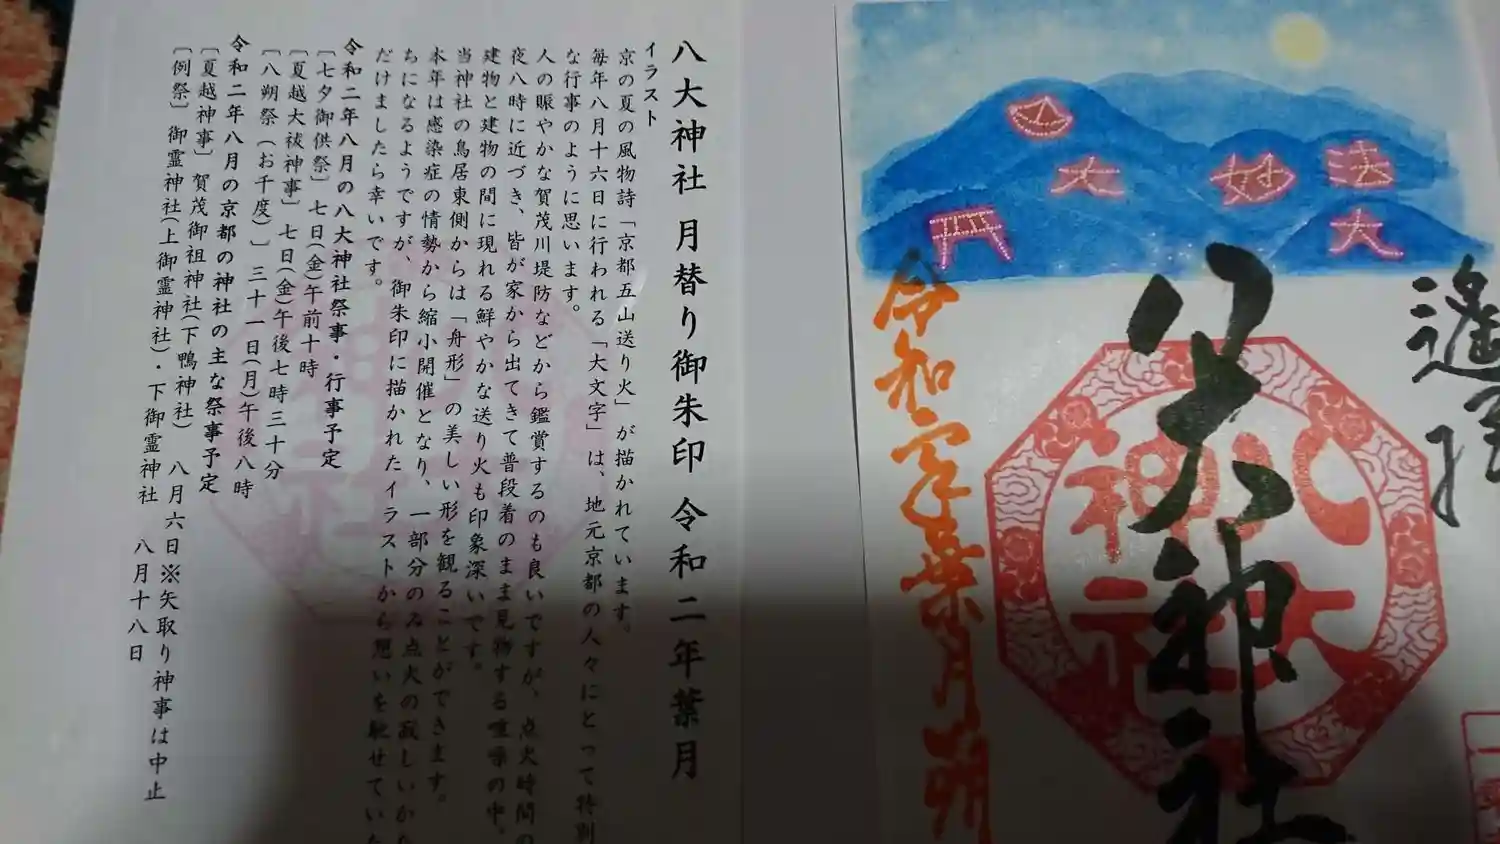 八大神社 月替り御朱印 令和二年葉月
イラスト
京の夏の風物詩「京都五山送り火」が描かれています。
毎年八月十六日に行われる「大文字」は、地元京都の人々にとって特別
な行事のように思います。
人の賑やかな賀茂川堤防などから鑑賞するのも良いですが、点火時間の
夜八時に近づき、皆が家から出てきて普段着のまま見物する喧噪の中、
建物と建物の間に現れる鮮やかな送り火も印象深いです。
当神社の鳥居東側からは「舟形」の美しい形を観ることができます。
本年は感染症の情勢から縮小開催となり、一部分のみ点火の寂しいかた
ちになるようですが、御朱印に描かれたイラストから想いを馳せていた
だけましたら幸いです。
令和二年八月の八大神社祭事・行事予定
〔七夕御供祭〕七日(金)午前十時
〔夏越大祓神事〕七日(金)午後七時三十分
〔八朔祭(お千度)〕三十一日(月)午後八時
令和二年八月の京都の神社の主な祭事予定
〔夏越神事〕賀茂御祖神社(下鴨神社) 八月六日※矢取り神事は中止
〔例祭〕御霊神社(上御霊神社)・下御霊神社 八月十八日
法
妙
大
大
遙拝
八大神社
八大神社
令和二年葉月